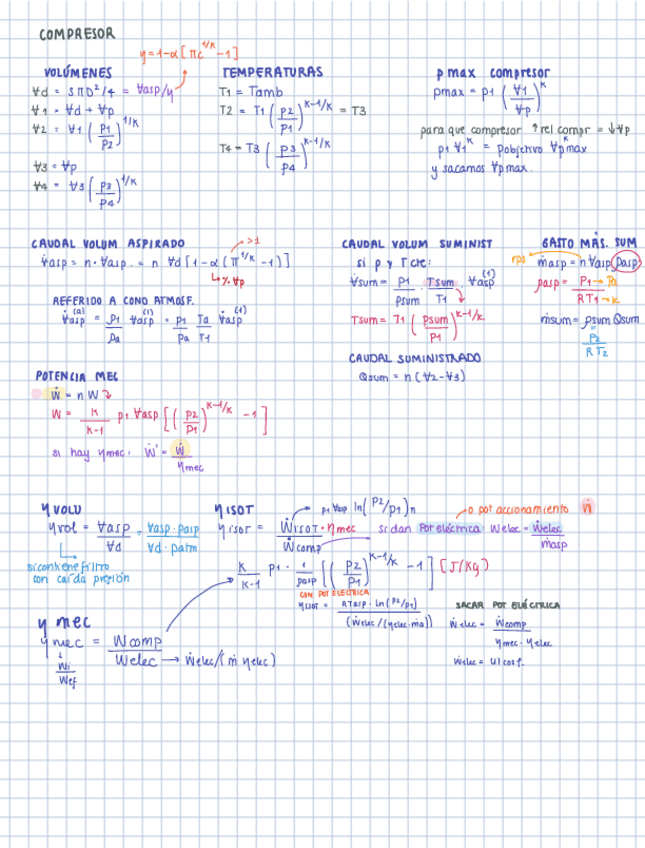 COMPRESOR
η = 1-α[πc^1/K -1]
VOLÚMENES
∀d = sπD²/4 = ∀asp/η
∀1 = ∀d + ∀p
∀2 = ∀1 (p1/p2)^1/K
∀3 = ∀p
∀4 = ∀3 (p3/p4)^1/K
TEMPERATURAS
T1 = Tamb
T2 = T1 (p2/p1)^K-1/K = T3
T4 = T3 (p3/p4)^K-1/K
p max compresor
pmax = p1 (∀1/∀p)^K
para que compresor ↑ rel compr = ↓∀p
p1 ∀1^K = pobjetivo ∀p^K max
y sacamos ∀p max.
CAUDAL VOLUM ASPIRADO
>1
∀̇asp = n · ∀asp = n ∀d [1-α(π^1/K -1)]
↳ % ∀p
REFERIDO A COND ATMOSF.
∀̇asp^(a) = p1/pa ∀̇asp^(1) = p1/pa Ta/T1 ∀̇asp^(1)
CAUDAL VOLUM SUMINIST
si p y T cte:
∀̇sum = p1/psum · Tsum/T1 · ∀̇asp^(1)
Tsum = T1 (psum/p1)^K-1/K
CAUDAL SUMINISTRADO
Qsum = n (∀2-∀3)
GASTO MÁS. SUM
rps
ṁasp = n ∀asp ρasp
ρasp = P1/RT1 → Pa → K
ṁsum = ρsum Qsum
= P2/R T2
POTENCIA MEC
Ẇ = n W
W = K/K-1 p1 ∀asp [(p2/p1)^K-1/K -1]
si hay ηmec: Ẇ' = Ẇ/ηmec
η VOLU
ηvol = ∀asp/∀d = ∀asp·ρasp/∀d·ρatm
si contiene filtro
con caída presión
η ISOT
→ p1 ∀asp ln(P2/p1) n
ηisot = Ẇisot · ηmec / Ẇcomp
→ o pot accionamiento Ẇ
si dan Pot eléctrica: Welec = Ẇelec/ṁasp
K/K-1 p1 · 1/ρasp [(p2/p1)^K-1/K -1] [J/Kg]
CON POT ELECTRICA
ηisot = RTasp · ln(P2/p1) / (Ẇelec/(ηelec·ṁa))
SACAR POT ELÉCTRICA
Ẇelec = Ẇcomp/ηmec · ηelec
Ẇelec = UI cosφ.
η mec
ηmec = Wcomp/Welec → Ẇelec/(ṁ ηelec)
↓
Ẇi/Wef